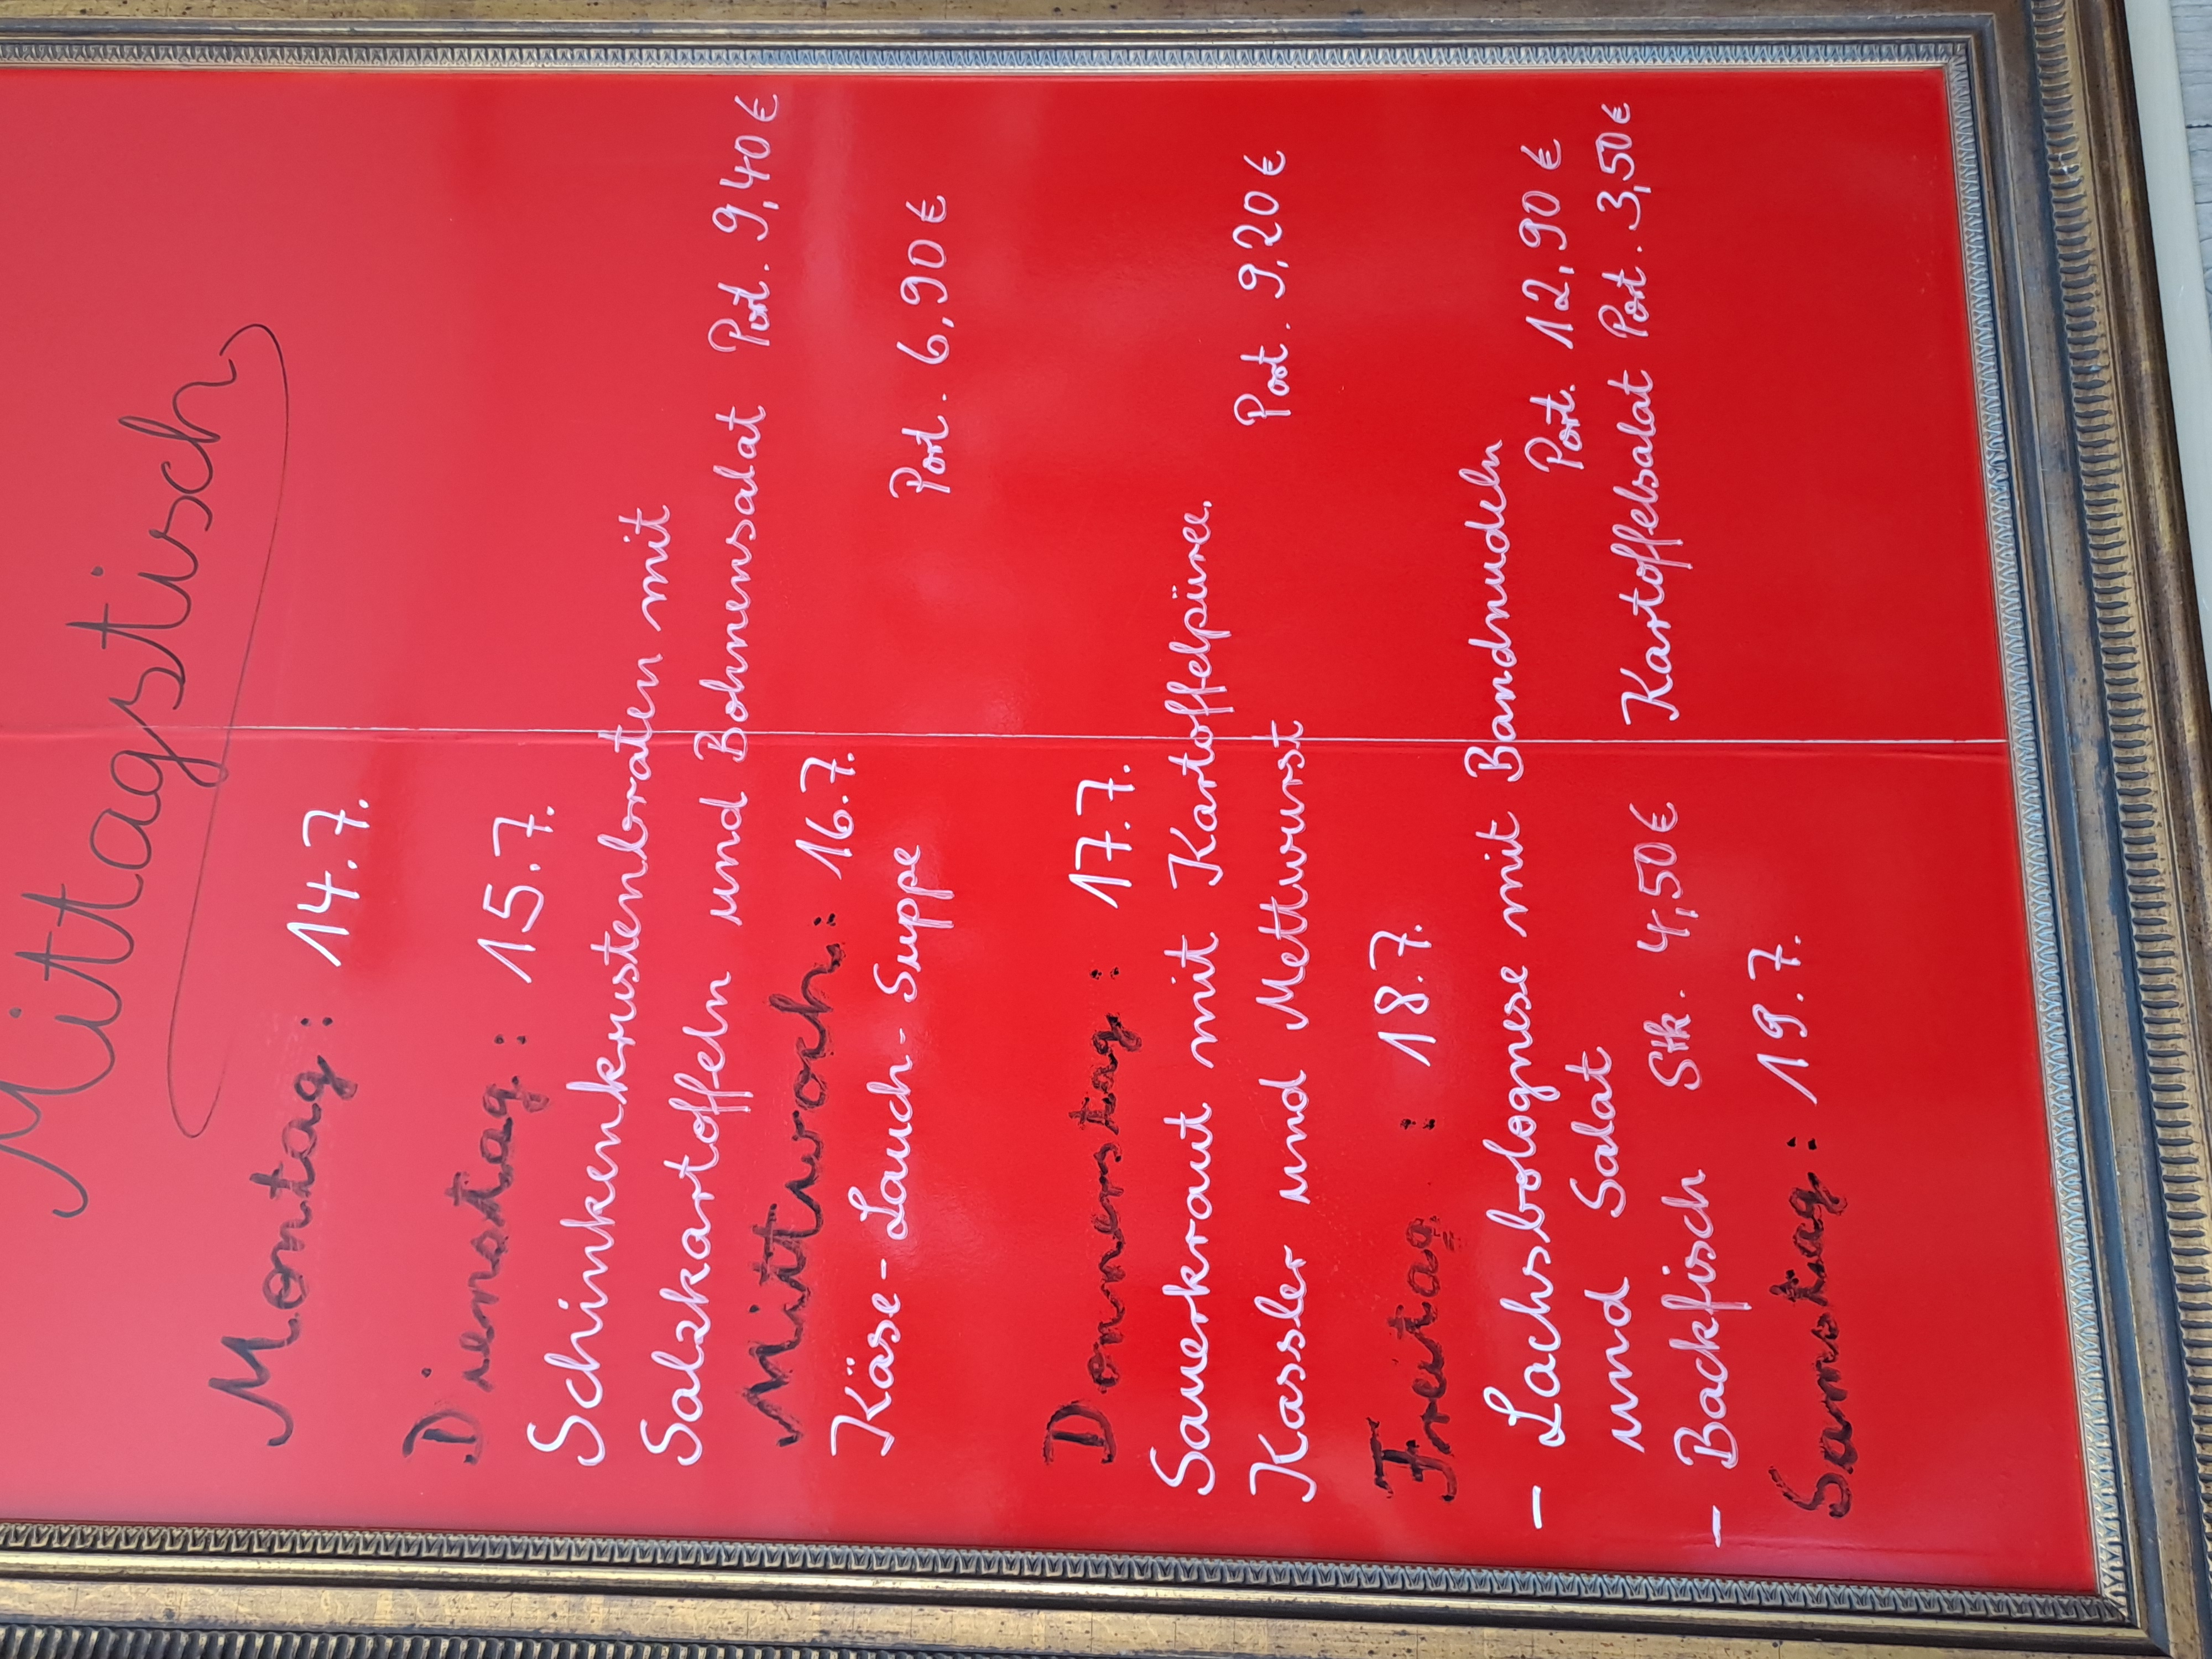 Mittagstisch
Montag: 14.7.
Dienstag: 15.7.
Schinkenkrustenbraten mit
Salzkartoffeln und Bohnensalat Port. 9,40 €
Mittwoch: 16.7.
Käse-Lauch-Suppe
Port. 6,90 €
Donnerstag: 17.7.
Sauerkraut mit Kartoffelpüree.
Kassler und Mettwurst Port. 9,20 €
Freitag : 18.7.
- Lachsbolognese mit Bandnudeln
und Salat Port. 12,90 €
- Backfisch Stk. 4,50 € Kartoffelsalat Port. 3,50 €
Samstag: 19.7.